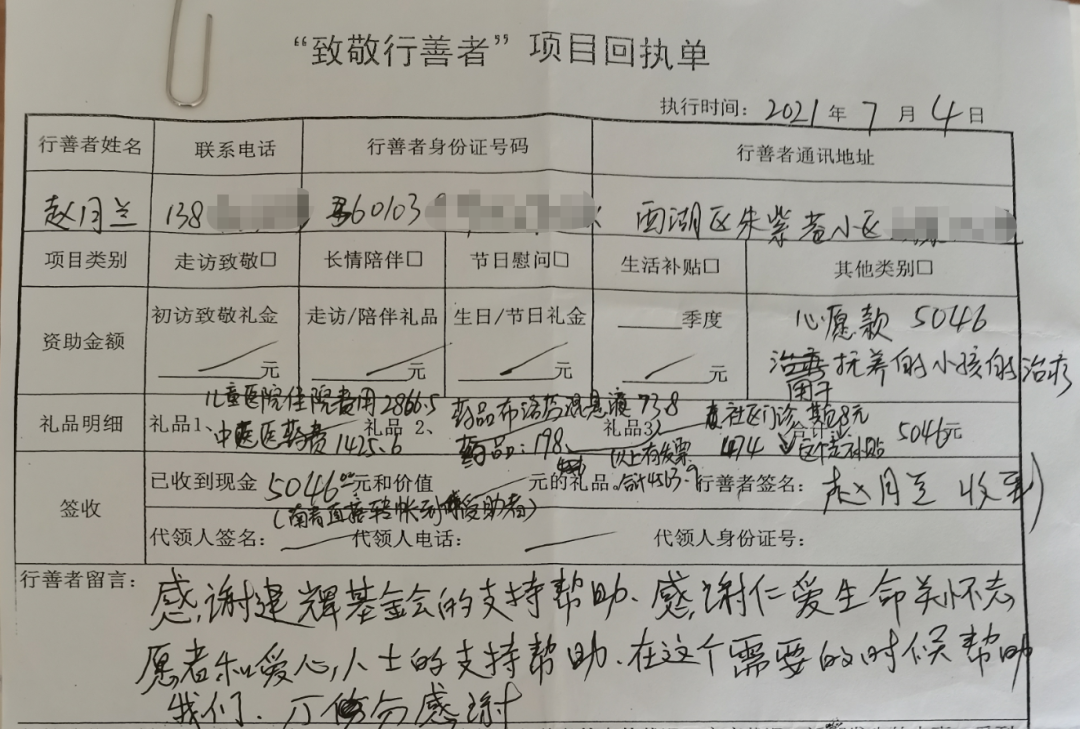 “致敬行善者”项目回执单
执行时间: 2021 年 7 月 4 日
行善者姓名 联系电话 行善者身份证号码 行善者通讯地址
赵月兰 138 360103 西湖区朱紫巷小区
项目类别 走访致敬□ 长情陪伴□ 节日慰问□ 生活补贴□ 其他类别□
资助金额 初访致敬礼金 走访/陪伴礼品 生日/节日礼金 季度 心愿款 5046
元 元 元 元 抚养的小孩的治疗
用于
儿童医院住院费用2866.5 药品布洛芬混悬液 73.8
礼品明细 礼品1、 中医医药费1425.6 礼品 2、 药品:198、 礼品3、 以上有发票 合计 474 5046元
签收 已收到现金 5046 元和价值 元的礼品。 合计4563.9 行善者签名: 赵月兰 收到
(南青直接转帐到 受助者)
代领人签名: 代领人电话: 代领人身份证号:
行善者留言: 感谢建辉基金会的支持帮助、感谢仁爱生命关怀志
愿者和爱心人士的支持帮助、在这个需要的时候帮助
我们、万分感谢